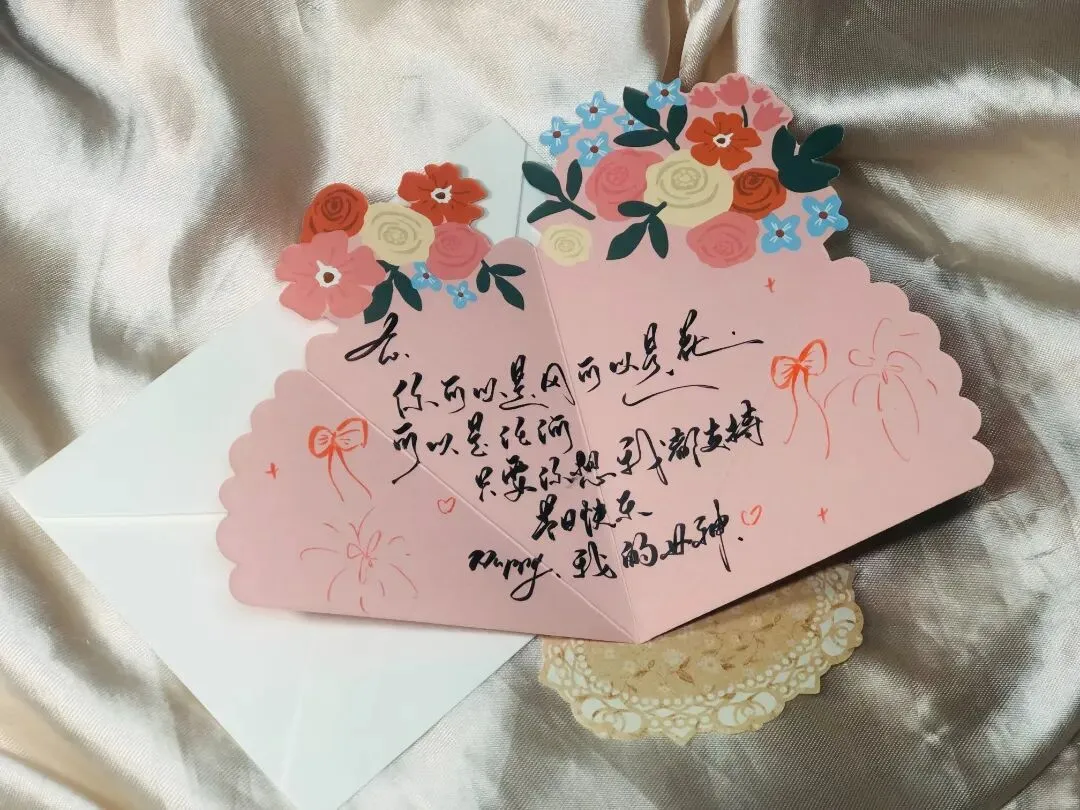 你可以是风 可以是花
可以是江河
只要你想 我都支持
日快乐
Happy. 我的女神.